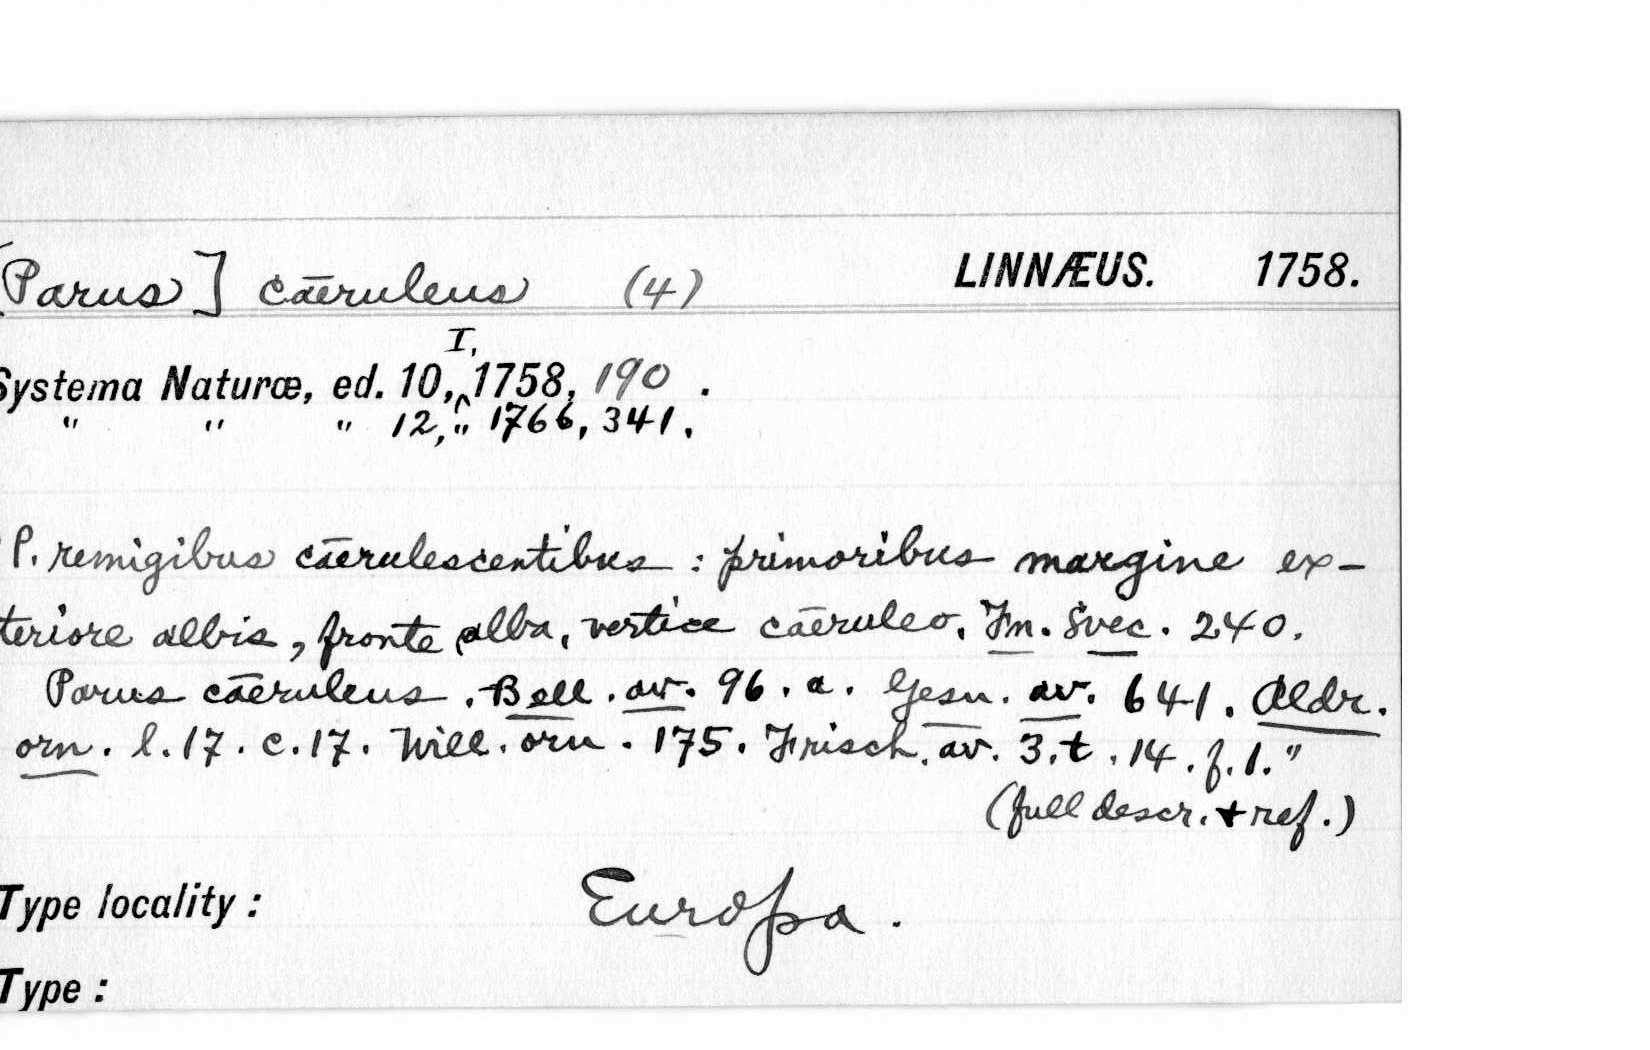 [Parus] cāeruleus (4) LINNÆUS. 1758.
I,
Systema Naturæ, ed. 10,^1758, 190 .
" " " 12, " 1766, 341.
P. remigibus cāerulescentibus : primoribus margine ex-
teriore albis, fronte alba, vertice cāeruleo. Fn. Svec. 240.
Parus cāeruleus . Bell . av. 96 . a . Gesn. av. 641 . Aldr.
orn . l.17 . c.17 . Will . orn . 175. Frisch. av. 3.t . 14 . f. 1."
(full descr. + ref.)
Type locality : Europa .
Type :